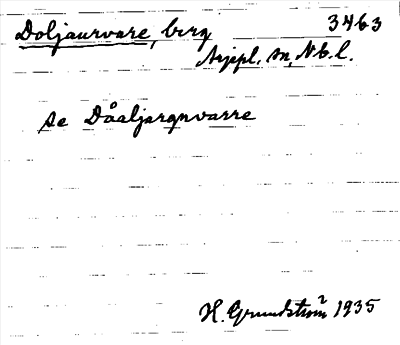 Doljaurvare, berg 3463
Arjepl. sn, Nb. l.
se Dåaljargnvarre
H. Grundström 1935